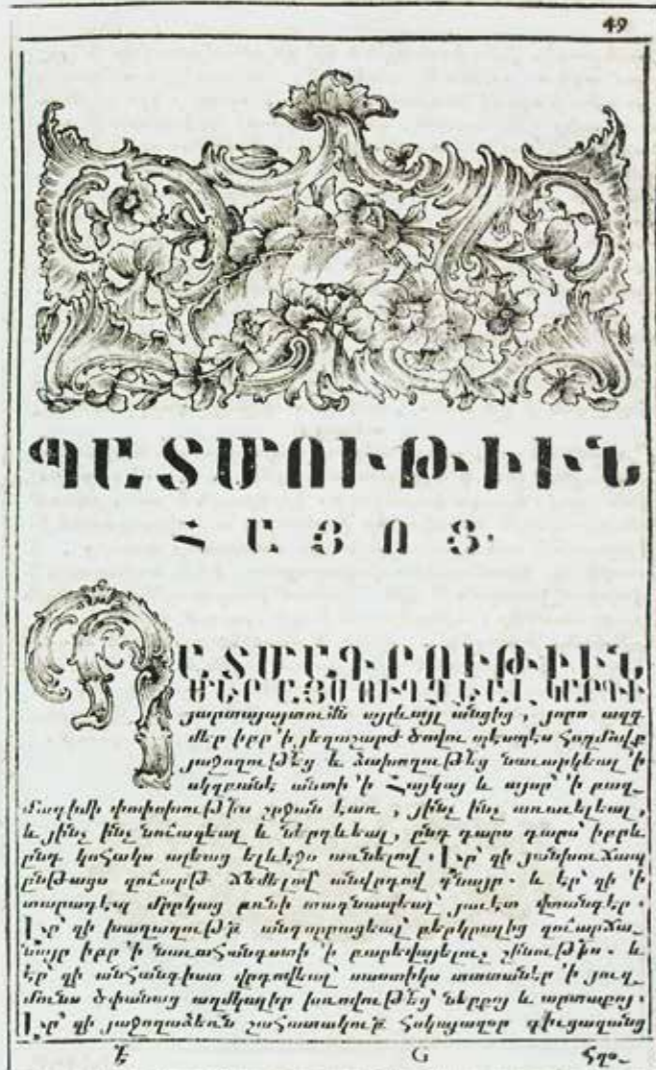 49
ՊԱՏՄՈՒԹԻՒՆ
ՀԱՅՈՑ
ՊԱՏՄԱԳՐՈՒԹԻՒՆ
ՄԵՐ ԱՅՍ ՈՒՂՉԵԱԼ ԿԱՐԳԻ
յարտայայտումն այլևայլ անցից, յորս ազգ
մեր իբր 'ի յեղաշարժ ծովու պէսպէս հողմովք
յաջողութեց և ձախողութեց նաւարկեալ 'ի
սկզբանէ անտի 'ի Հայկայ և այսր 'ի բազ-
մադիմի փոփոխութիս շրջան էառ, յինչ ինչ առաւելեալ,
և յինչ ինչ նուազեալ և ներգևեալ, ընդ դարս դարս իբրև
ընդ կոհակս ալեաց ելևէջս առնելով. Էր զի յանխուճապ
ընթացս զուարթ ճեմելով անվրդով գնայր. և էր զի 'ի
տարադէպ մրրկաց բռնի տագնապեալ յաւէտ վտանգէր.
Էր զի խաղաղութե անդորրացեալ բերկրալից զուարճա-
նայր իբր 'ի նաւահանգստի 'ի բարեվայելուչ շինութիս. և
էր զի անհանգիստ վրդովեալ սաստիկս տատանէր 'ի յուզ-
մունս ծփանաց աղմկալիր խռովութեց ներքոյ և արտաքոյ.
Էր զի յաջողաձեռն շահատակութե հսկայազօր դիւցազանց
է G հզօ-